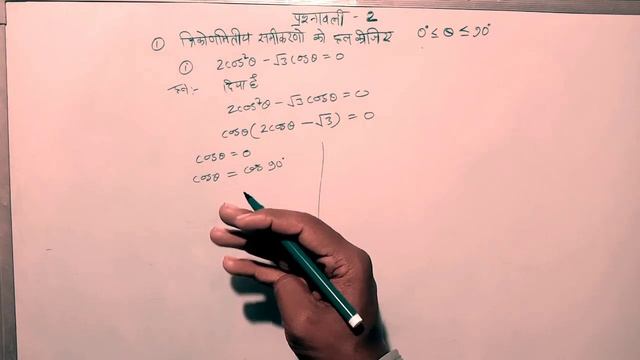 प्रश्नावली - 2
① त्रिकोणमितीय समीकरणो को हल कीजिए 0° ≤ θ ≤ 90°
① 2cos²θ - √3cosθ = 0
हल:- दिया है
2cos²θ - √3cosθ = 0
cosθ(2cosθ - √3) = 0
cosθ = 0
cosθ = cos 90°